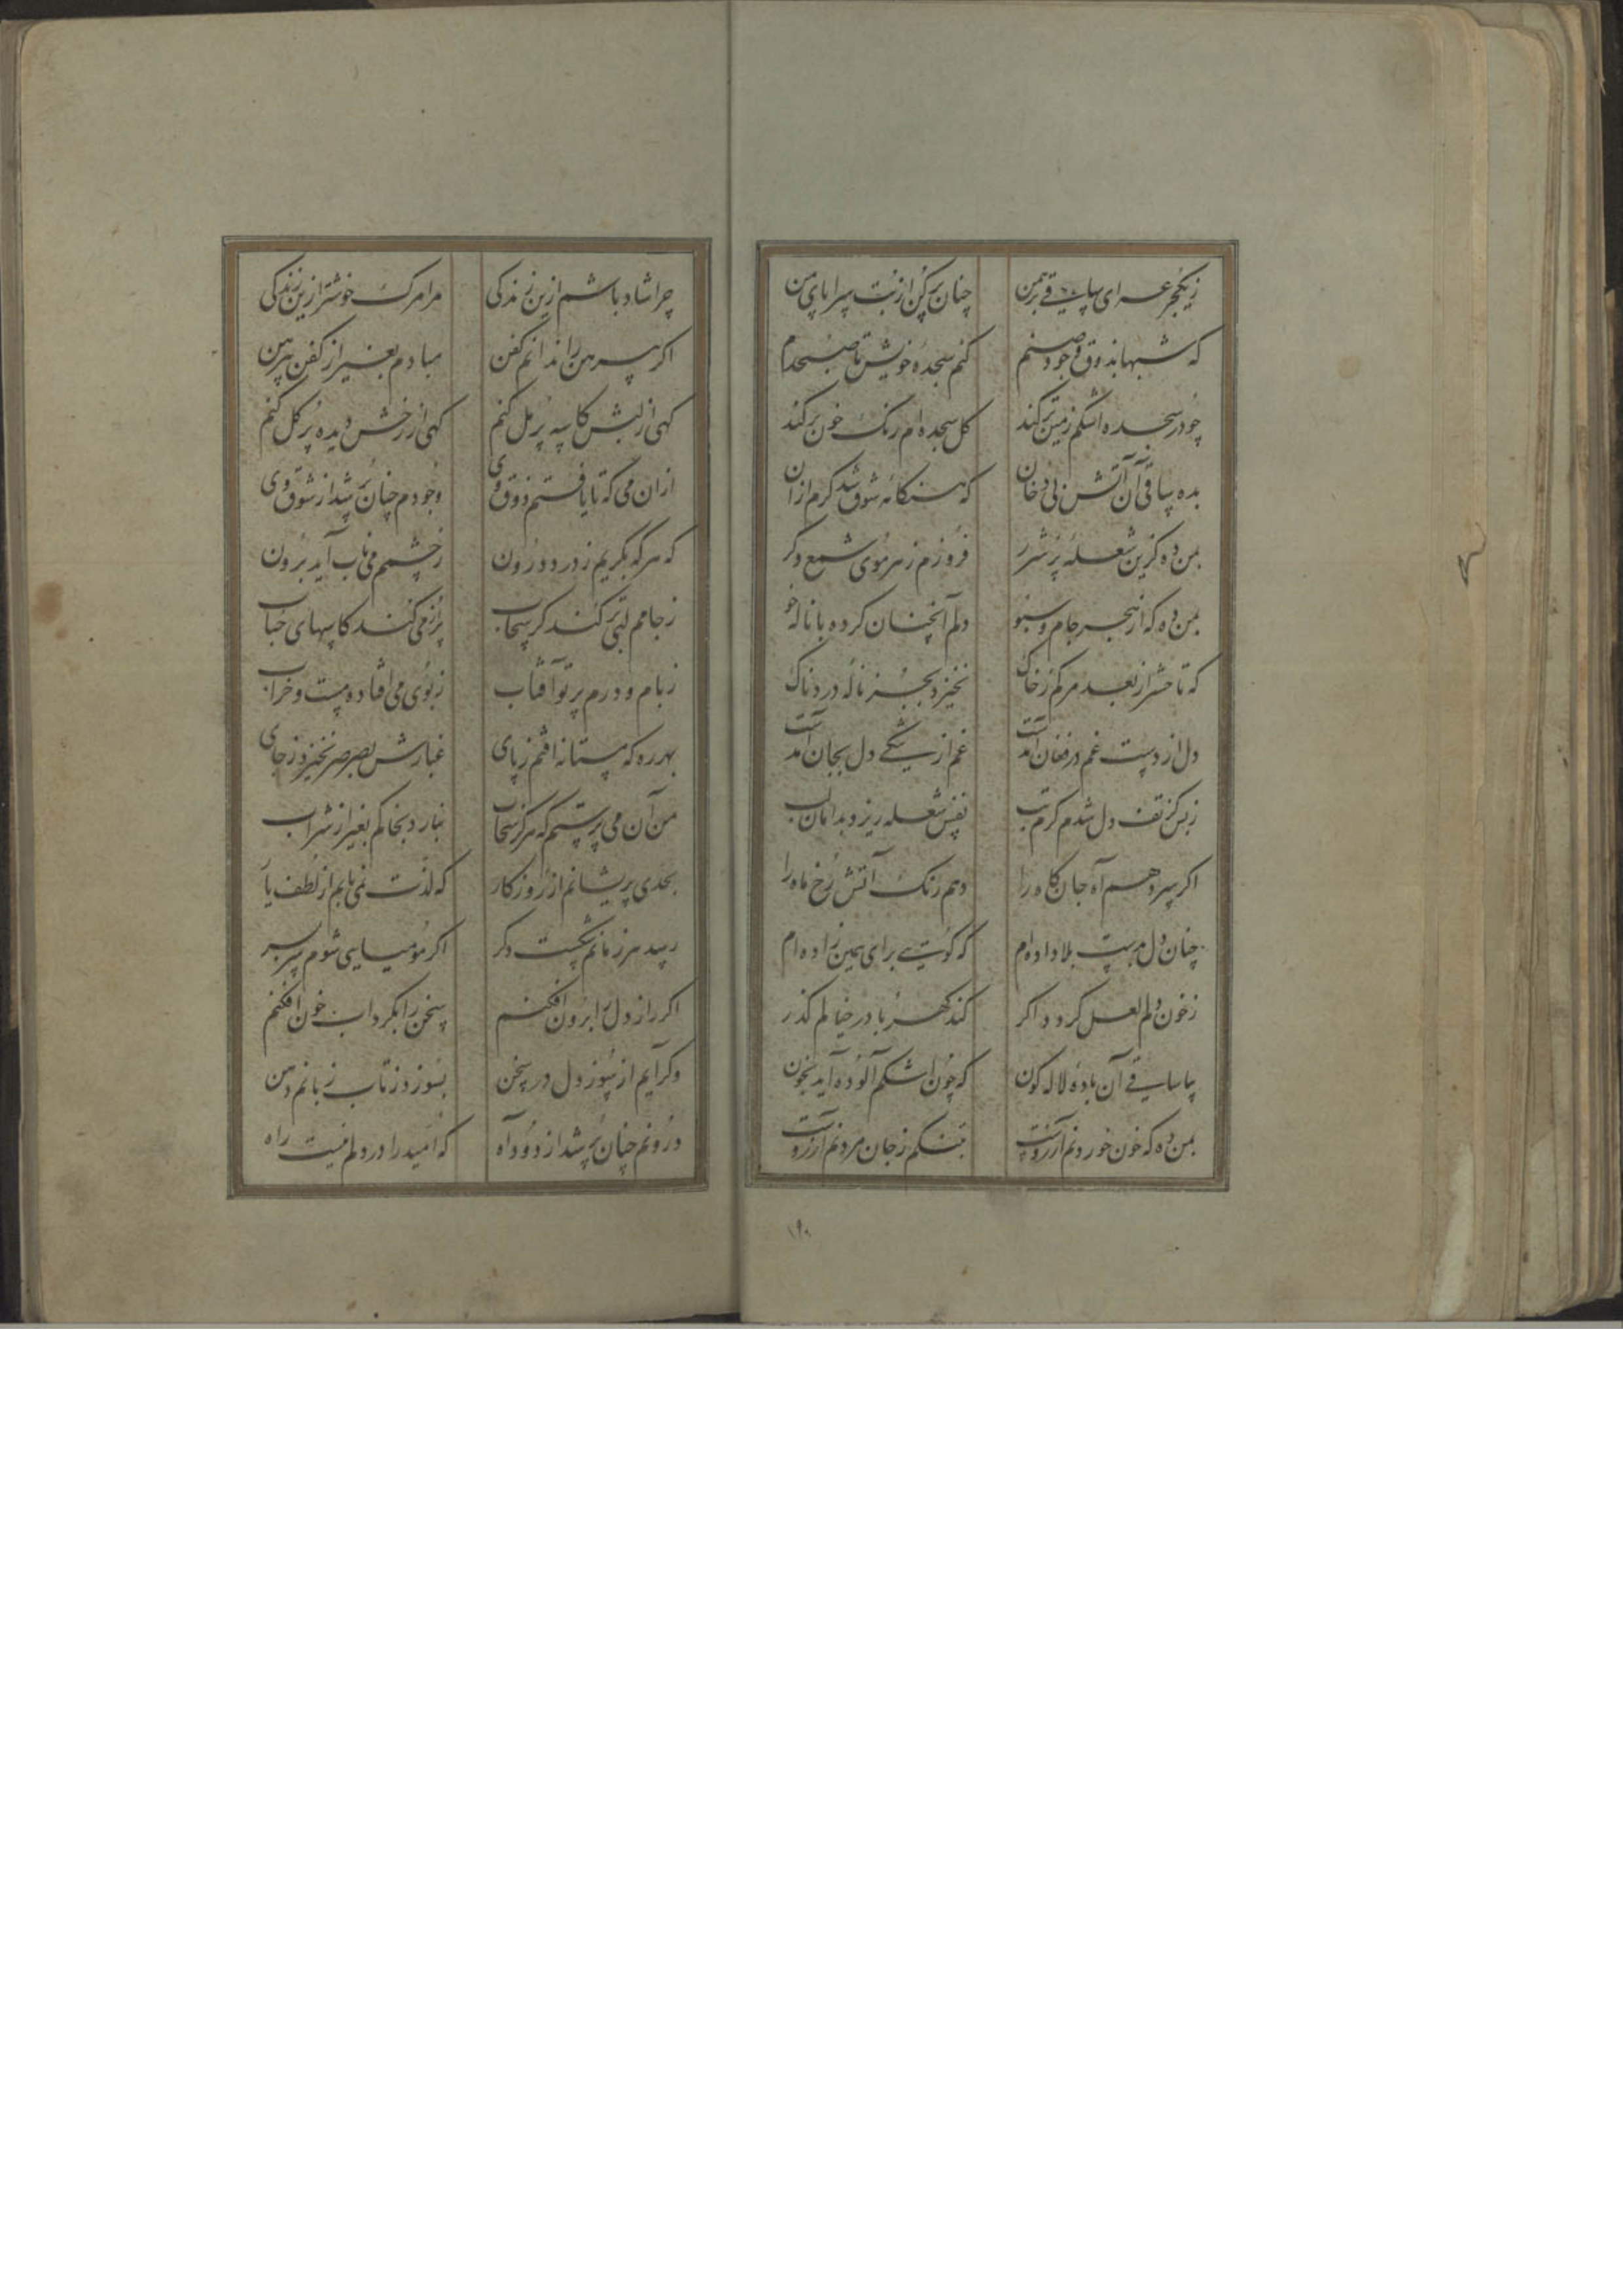 زیکجرعه ای ساقی برهمن چنان پر کن از بت سراپای من
که شبها بذوق وجود صنم کنم سجدهٔ خویش تا صبحدم
چو در سجده اشکم زمین تر کند کل سجده ام رنک خون بر کند
بده ساقی آن آتش بی دخان که هنکامه شوق شد کرم ازان
بمن ده کزین شعلهٔ پر شرر فروزم ز هر موی شمع دکر
بمن ده که از هجر جام و سبو دلم آنچنان کرده با ناله خو
که تا حشر از بعد مرکم ز خاک نخیزد بجز نالهٔ دردناک
دل از دست غم در فغان آمدست غم از تنکی دل بجان آمدست
ز بس کز تف دل شدم کرم تب نفس شعله ریزد بدامان لب
اکر سر دهم آه جان کاه را دهم رنک آتش رخ ماه را
چنان دل بدست بلا داده ام که کویی برای همین زاده ام
ز خون دلم لعل کردد اکر کند کهربا در خیالم کذر
بیا ساقی آن بادهٔ لاله کون که چون اشکم آلوده آید بخون
بمن ده که خون خوردنم آرزوست بتنکم ز جان مردنم آرزوست
۱۹۰
چرا شاد باشم ازین زندکی مرا مرک خوشتر ازین زندکی
اکر پیرهن را ندانم کفن مبادم بغیر از کفن پیرهن
کهی از لبش کاسه پر مل کنم کهی از رخش دیده پر کل کنم
ازان می که تا یافتم ذوق وی وجودم چنان پر شد از شوق وی
که هر که بکریم ز درد درون ز چشمم می ناب آید برون
ز جامم لبی تر کند کر سحاب پر از می کند کاسهای حباب
ز بام و درم پرتو آفتاب ز بوی می افتاده مست و خراب
بهر ره که مستانه افتم ز پای غبارش بصرصر نخیزد ز جای
من آن می پرستم که هرکز سحاب نبارد بخاکم بغیر از شراب
بحدی پریشانم از روزکار که لذت نمی یابم از لطف یار
رسد هر زمانم شکست دکر اکر مومیایی شوم سر بسر
اکر راز دل را برون افکنم سخن را بکرداب خون افکنم
وکر آیم از سوز دل در سخن بسوزد ز تاب زبانم دهن
درونم چنان پر شد از دود آه که امید را در دلم نیست راه